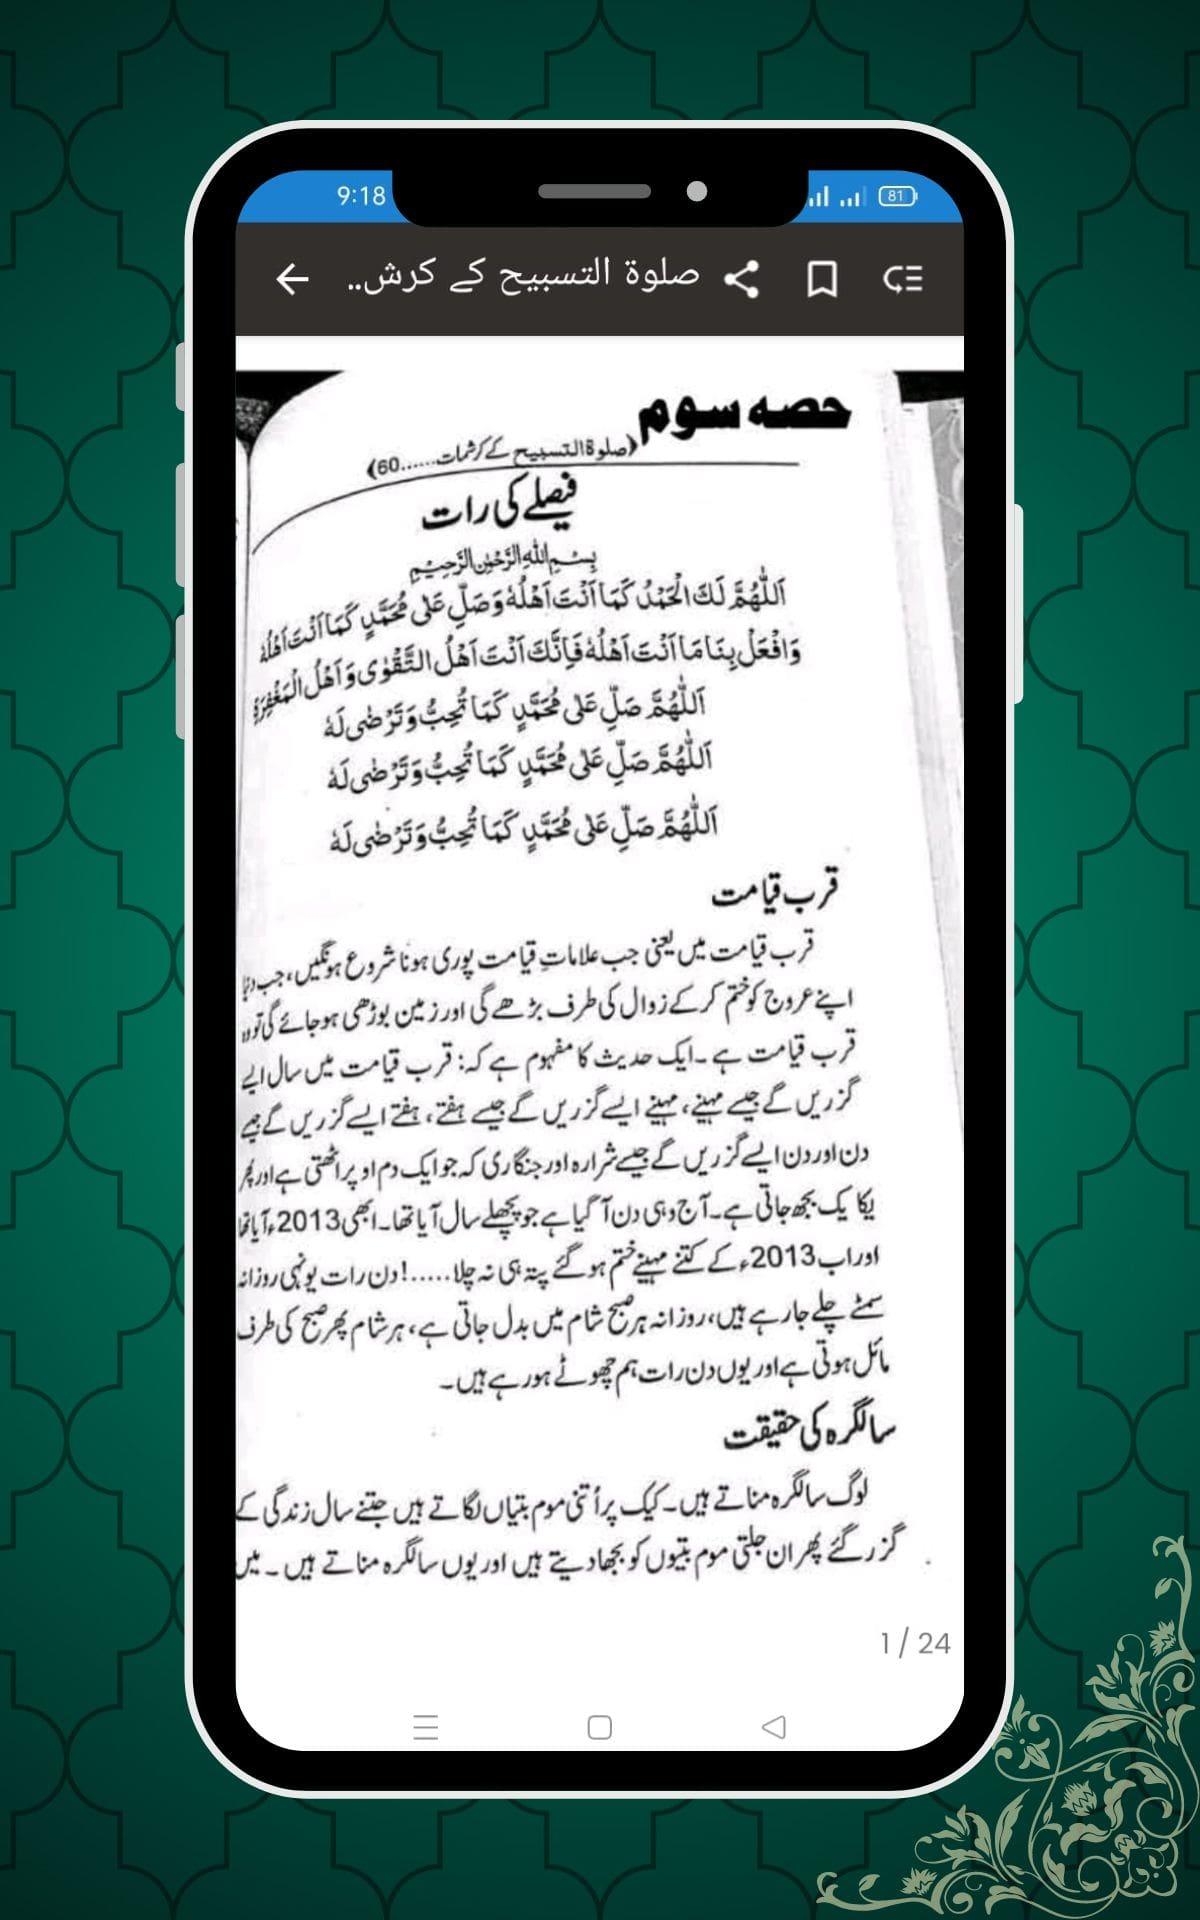 9:18
81
صلوة التسبیح کے کرش..
حصہ سوم
(صلوۃ التسبیح کے کرشمات......60)
فیصلے کی رات
بِسْمِ اللّٰہِ الرَّحْمٰنِ الرَّحِیْمِ
اَللّٰهُمَّ لَكَ الْحَمْدُ كَمَا اَنْتَ اَهْلُهٗ وَصَلِّ عَلٰى مُحَمَّدٍ كَمَا اَنْتَ اَهْلُهٗ
وَافْعَلْ بِنَا مَا اَنْتَ اَهْلُهٗ فَاِنَّكَ اَنْتَ اَهْلُ التَّقْوٰى وَاَهْلُ الْمَغْفِرَةِ
اَللّٰهُمَّ صَلِّ عَلٰى مُحَمَّدٍ كَمَا تُحِبُّ وَتَرْضٰى لَهٗ
اَللّٰهُمَّ صَلِّ عَلٰى مُحَمَّدٍ كَمَا تُحِبُّ وَتَرْضٰى لَهٗ
اَللّٰهُمَّ صَلِّ عَلٰى مُحَمَّدٍ كَمَا تُحِبُّ وَتَرْضٰى لَهٗ
قرب قیامت
قرب قیامت میں یعنی جب علاماتِ قیامت پوری ہونا شروع ہونگیں، جب دنیا
اپنے عروج کو ختم کر کے زوال کی طرف بڑھے گی اور زمین بوڑھی ہو جائے گی تو وہ
قرب قیامت ہے۔ ایک حدیث کا مفہوم ہے کہ: قرب قیامت میں سال ایسے
گزریں گے جیسے مہینے، مہینے ایسے گزریں گے جیسے ہفتے، ہفتے ایسے گزریں گے جیسے
دن اور دن ایسے گزریں گے جیسے شرارہ اور چنگاری کہ جو ایک دم اوپر اٹھتی ہے اور پھر
یکا یک بجھ جاتی ہے۔ آج وہی دن آ گیا ہے جو پچھلے سال آیا تھا۔ ابھی 2013ء آیا تھا
اور اب 2013ء کے کتنے مہینے ختم ہو گئے پتہ ہی نہ چلا.....! دن رات یونہی روزانہ
سمٹے چلے جا رہے ہیں، روزانہ ہر صبح شام میں بدل جاتی ہے، ہر شام پھر صبح کی طرف
مائل ہوتی ہے اور یوں دن رات ہم چھوٹے ہو رہے ہیں۔
سالگرہ کی حقیقت
لوگ سالگرہ مناتے ہیں۔ کیک پر اُتنی موم بتیاں لگاتے ہیں جتنے سال زندگی کے
گزر گئے پھر ان جلتی موم بتیوں کو بجھا دیتے ہیں اور یوں سالگرہ مناتے ہیں۔ میں
1 / 24